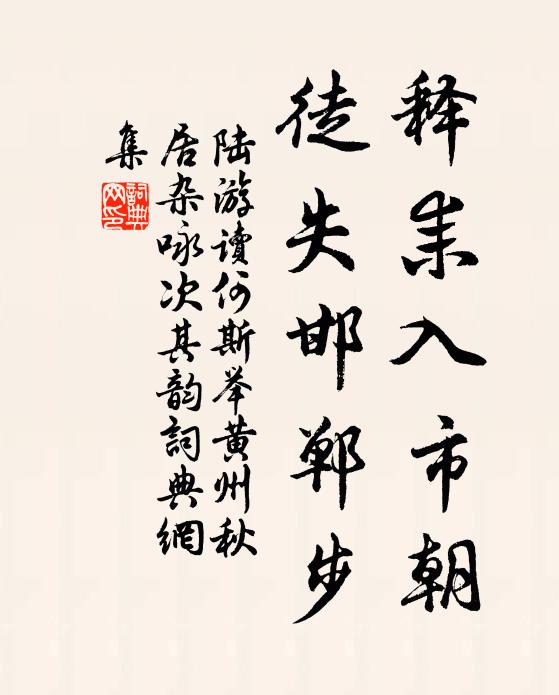 释耒入市朝
徒失邯郸步
陆游读何斯举黄州秋
居杂咏次其韵词典網
集
詞典
网印